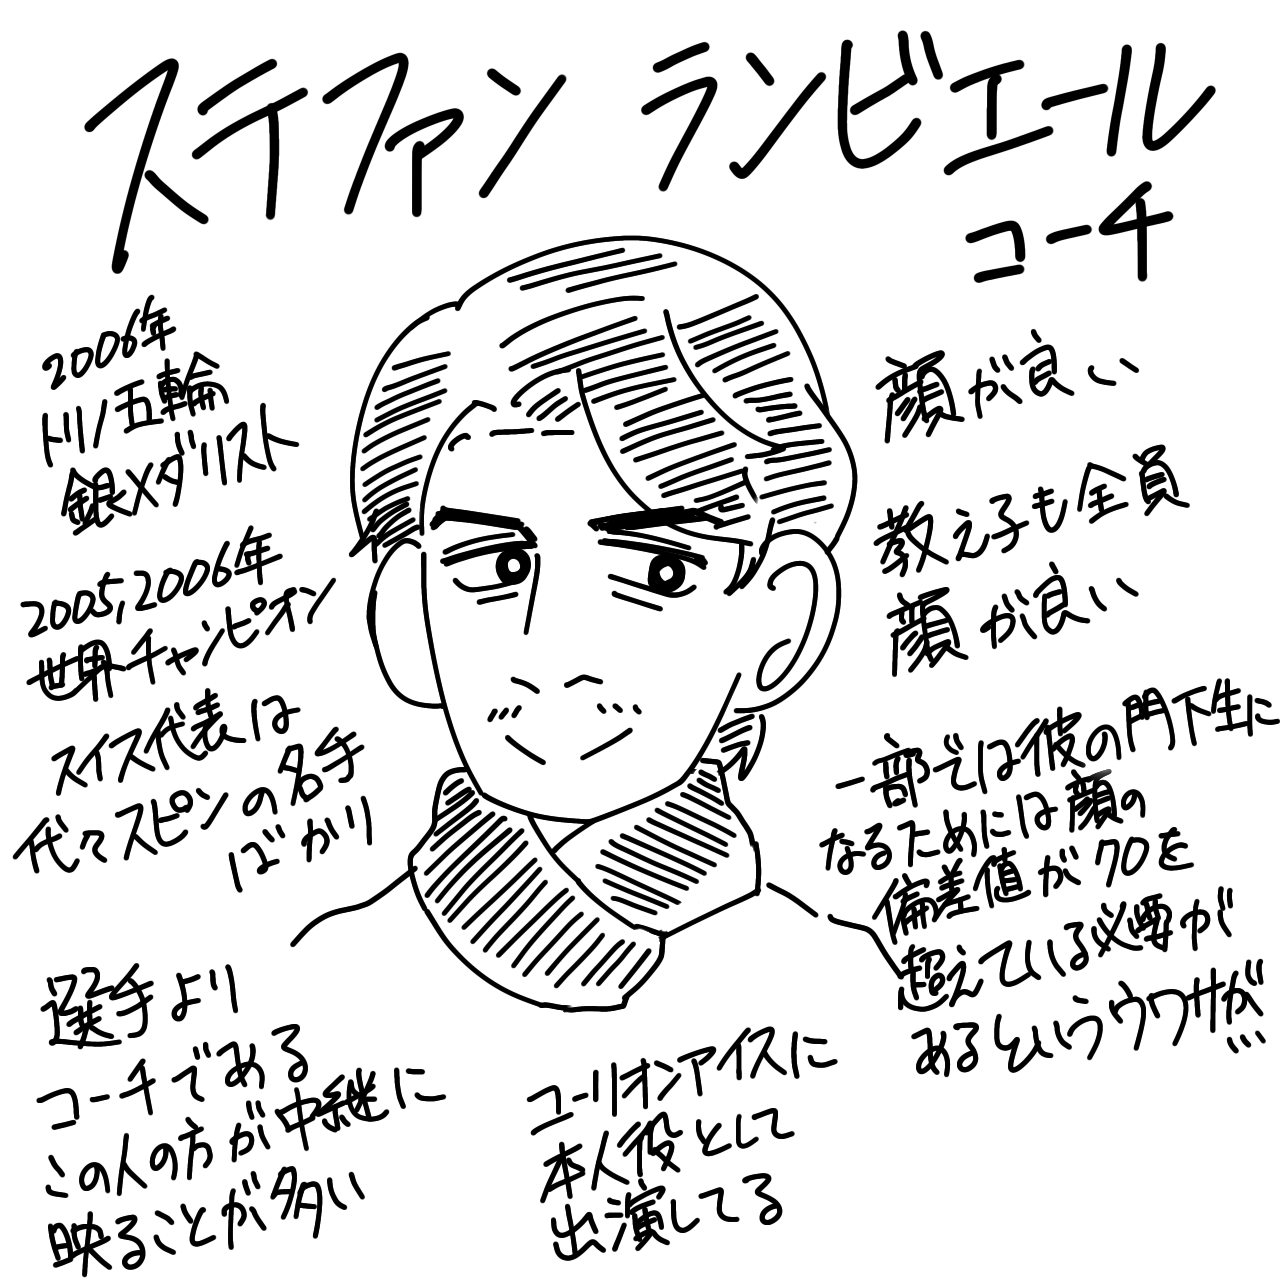 ステファン ランビエール
コーチ
2006年
トリノ五輪
銀メダリスト
2005,2006年
世界チャンピオン
スイス代表は
代々スピンの名手
ばかり
選手より
コーチである
この人の方が中継に
映ることが多い
ユーリオンアイスに
本人役として
出演してる
顔が良い
教え子も全員
顔が良い
一部では彼の門下生に
なるためには顔の
偏差値が70を
超えている必要が
あるというウワサが…